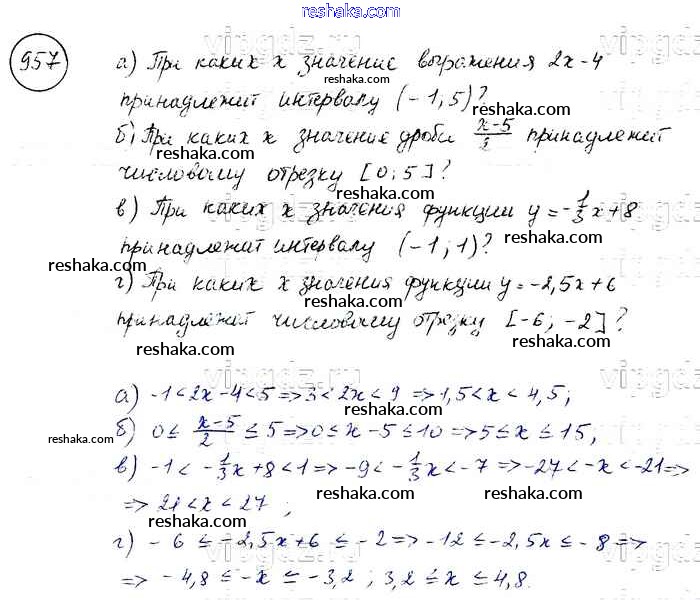 reshaka.com
957
а) При каких x значение выражения 2x-4
reshaka.com
принадлежит интервалу (-1; 5)?
reshaka.com
б) При каких x значение дроби x-5/2 принадлежит
reshaka.com
числовому отрезку [0; 5]?
reshaka.com
в) При каких x значения функции y=-1/3x+8
reshaka.com
принадлежит интервалу (-1; 1)?
reshaka.com
reshaka.com
г) При каких x значения функции y=-2,5x+6
reshaka.com
принадлежат числовому отрезку [-6; -2]?
reshaka.com
reshaka.com
а) -1<2x-4<5=>3<2x<9=>1,5<x<4,5;
reshaka.com
б) 0≤x-5/2≤5=>0≤x-5≤10=>5≤x≤15;
reshaka.com
reshaka.com
в) -1<-1/3x+8<1=>-9<-1/3x<-7=>-27<-x<-21=>
reshaka.com
reshaka.com
=> 21<x<27;
reshaka.com
г) -6≤-2,5x+6≤-2=>-12≤-2,5x≤-8=>
reshaka.com
=> -4,8≤-x≤-3,2; 3,2≤x≤4,8.
reshaka.com